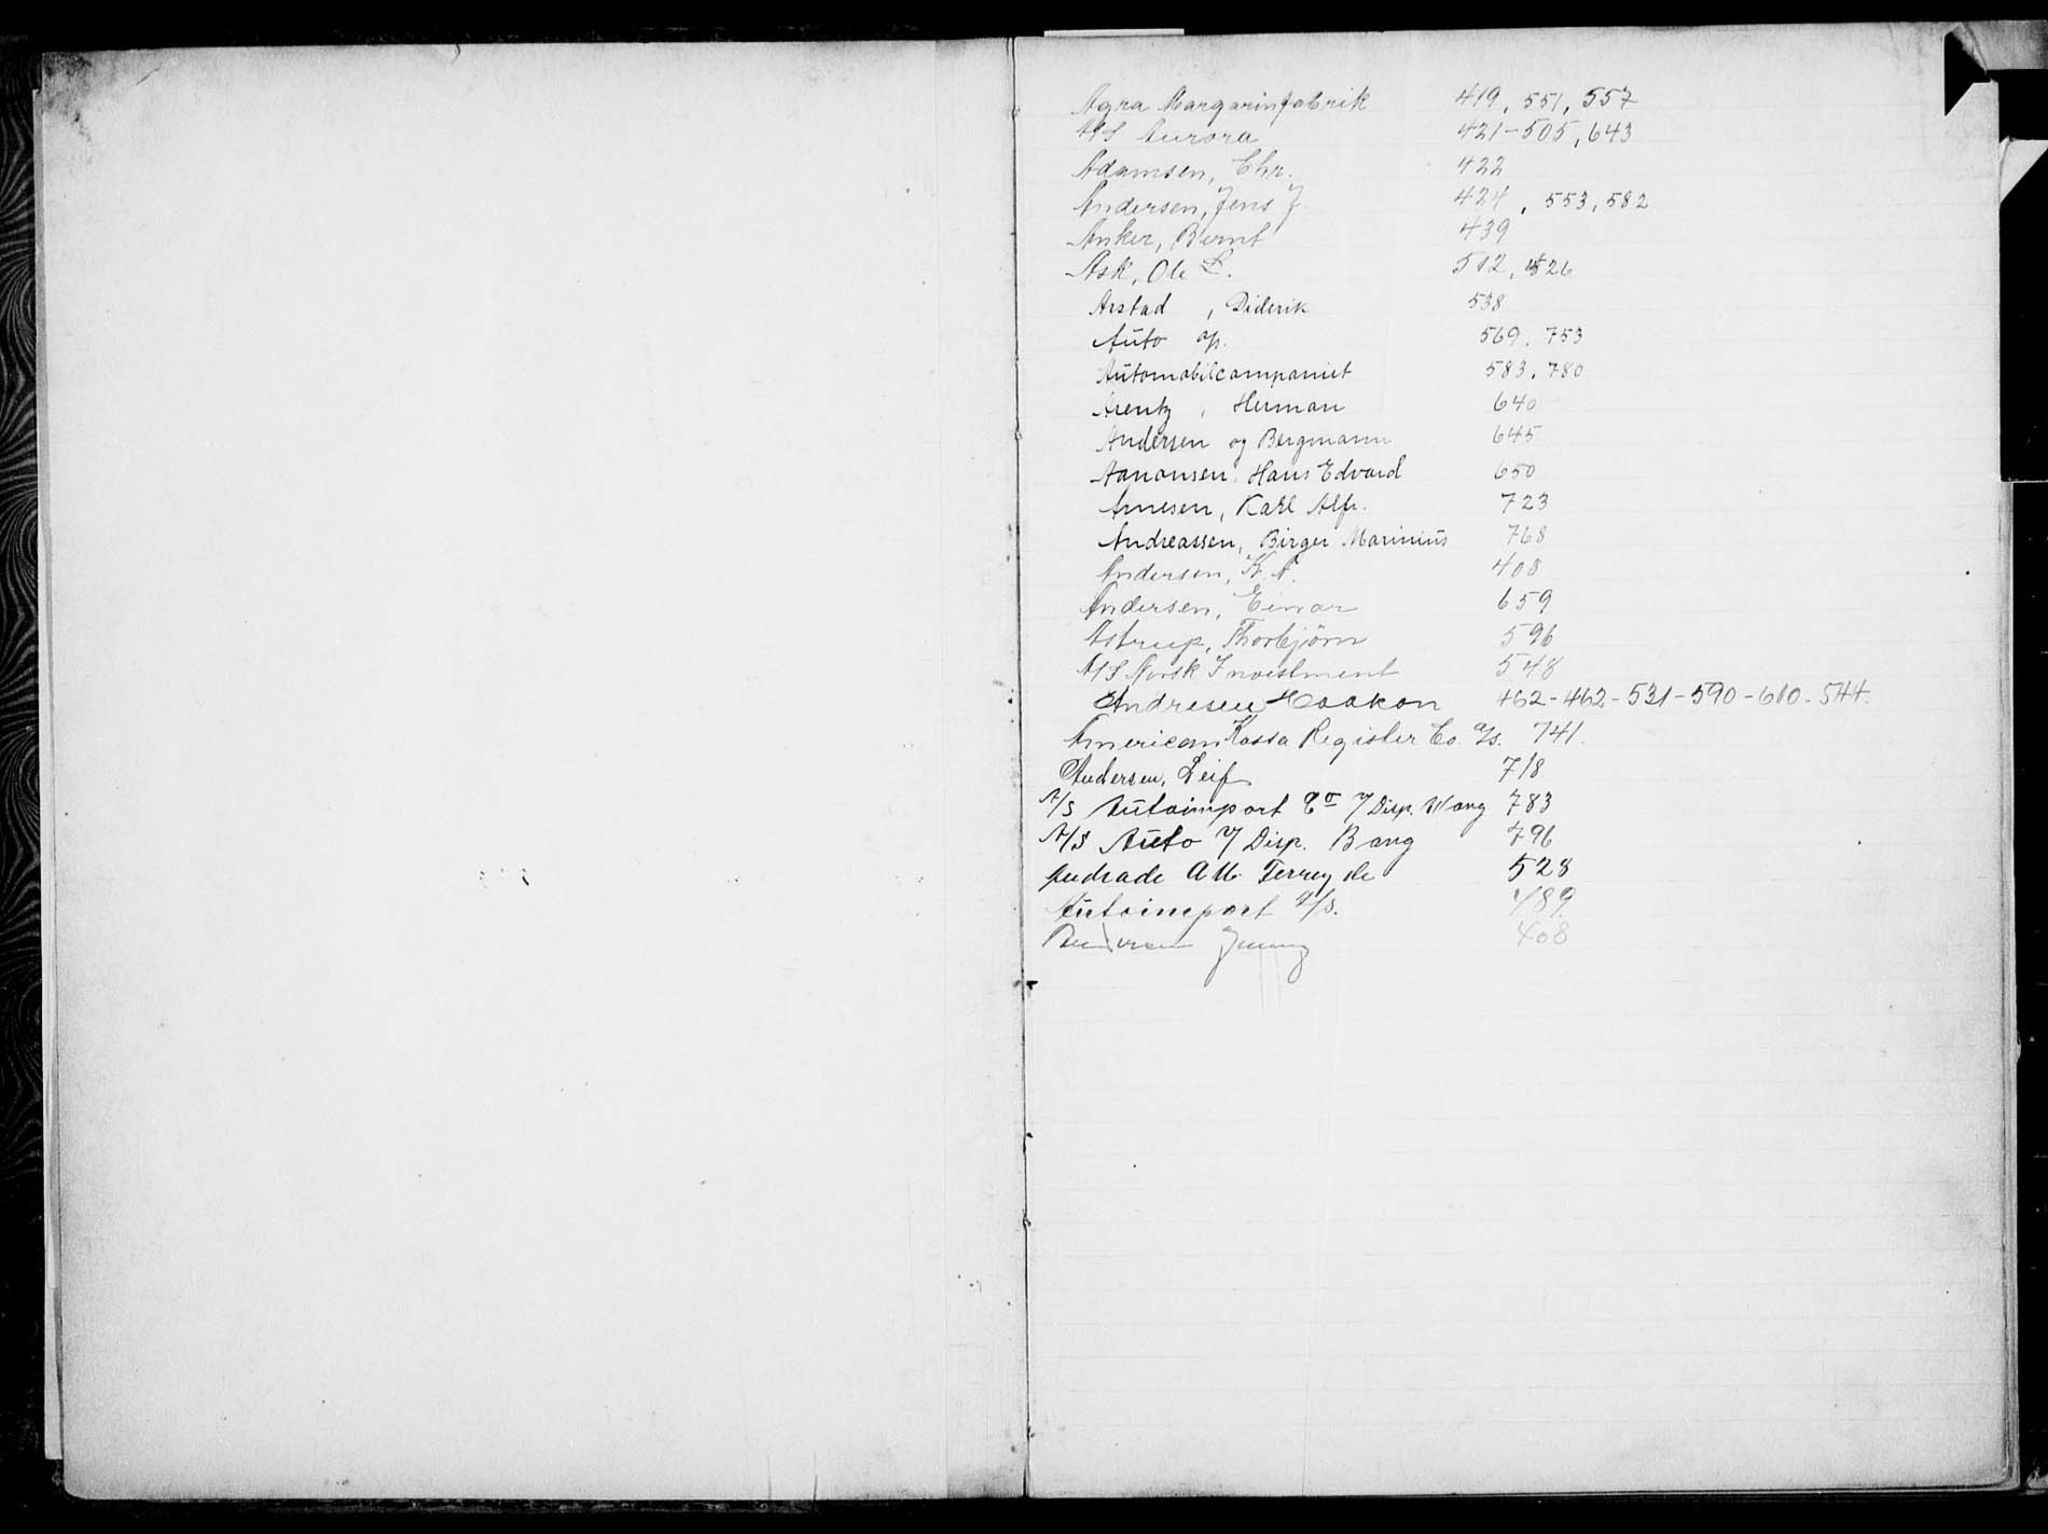 Agra Margarinfabrik 419, 551, 557
A/S Aurora 421-505, 643
Adamsen, Chr. 422
Andersen, Jens J. 424, 553, 582
Anker, Bernt 439
Ask, Ole L. 512, 526
Arstad, Diderik 538
Auto a/s. 569, 753
Automobilcompaniet 583, 780
Arentz, Herman 640
Andersen og Bergmann 645
Aanonsen, Hans Edvard 650
Arnesen, Karl Alfr. 723
Andreassen, Birger Marinius 768
Andersen, K. A. 408
Andersen, Einar 659
Astrup, Thorbjörn 596
A/S Norsk Investment 548
Andresen Haakon 462-462-531-590-610-544.
American Kassa Register Co. a/s. 741.
Andersen, Leif 718
A/S Autoimport Co v/ Disp. Wang 783
A/S Auto v/ Disp. Bang 796
Andrade A M. Ferrey de 528
Autoimport a/s. 789
Andersen 408